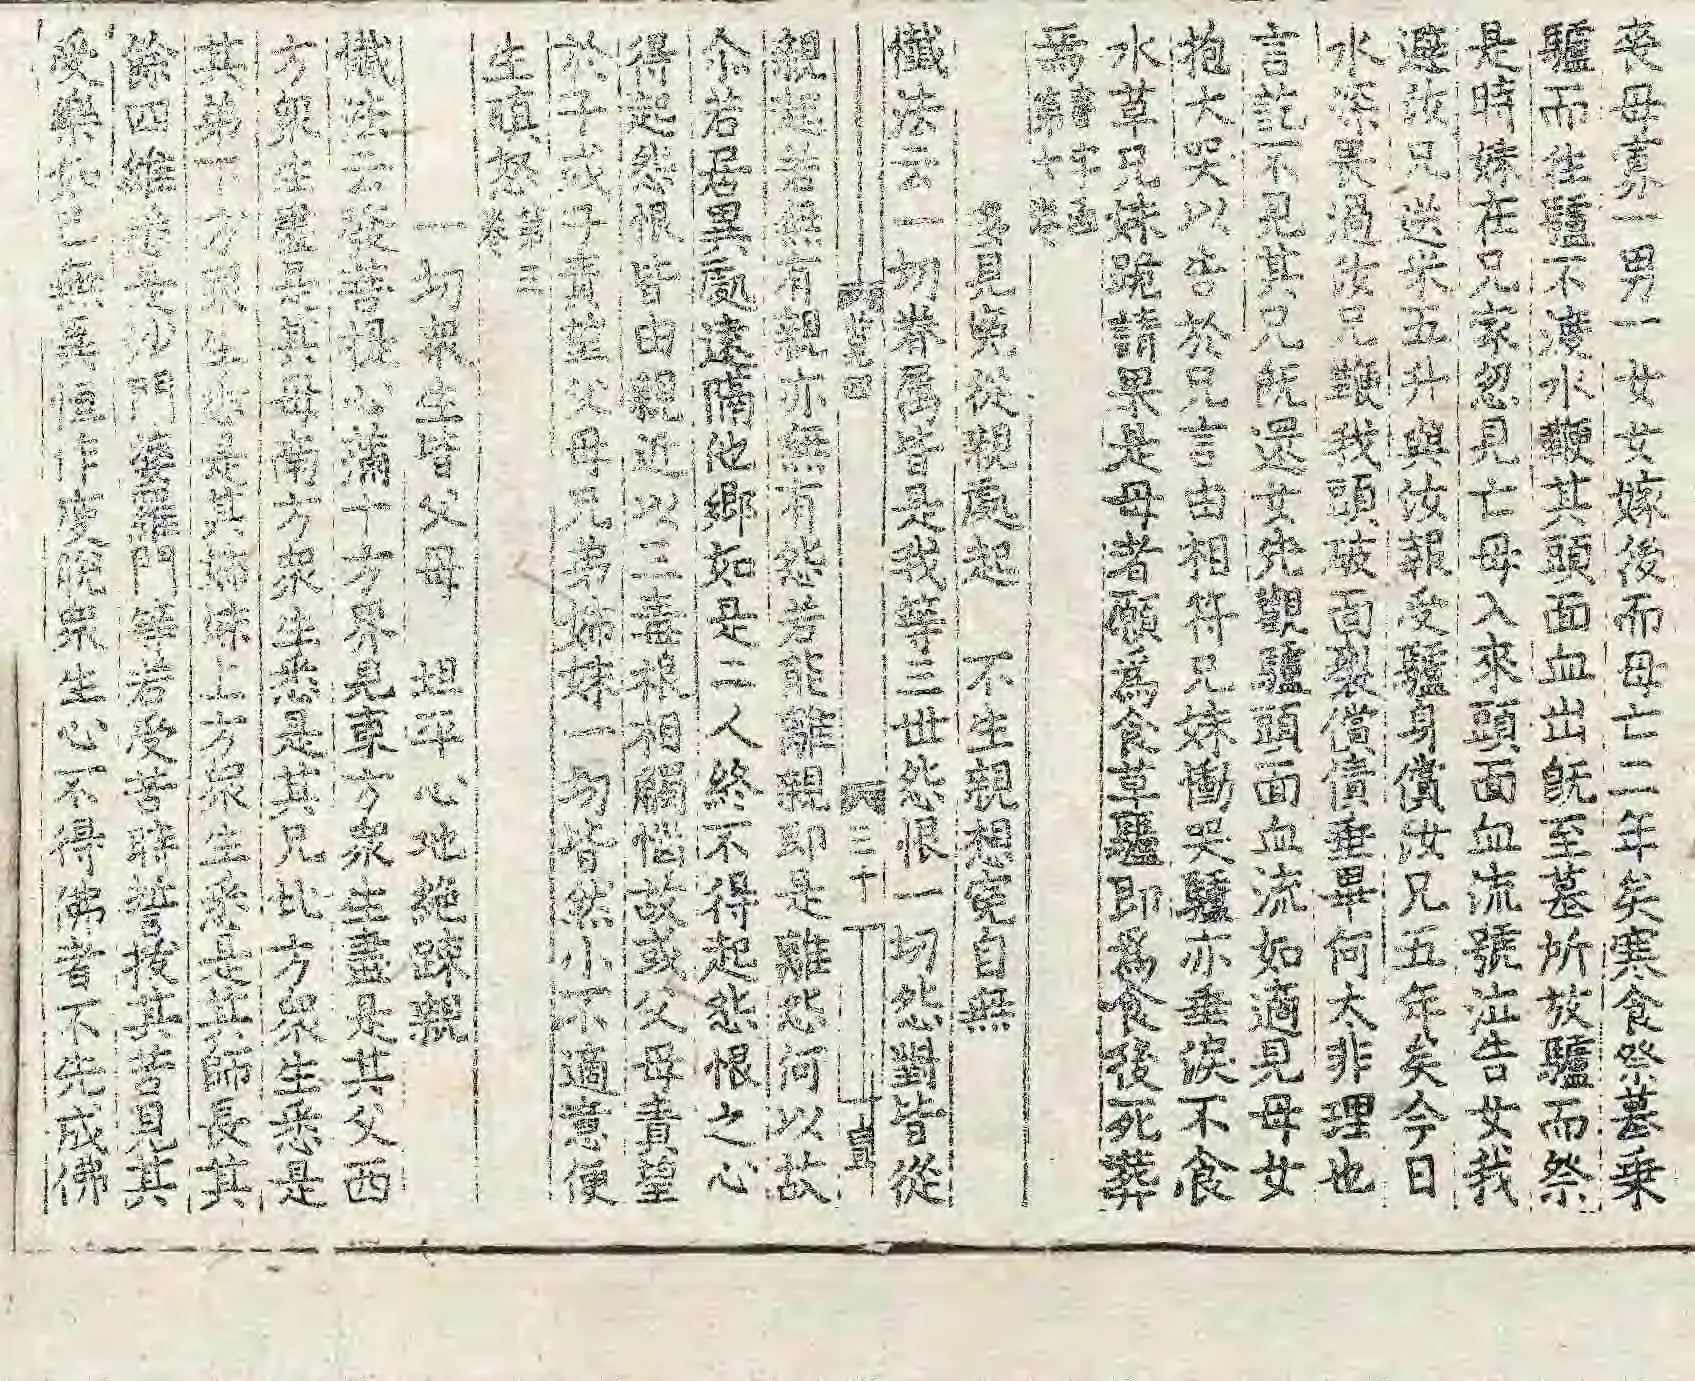 喪母寡一男一女女嫁後而母亡二年矣寒食祭墓乗
驢而往驢不渡水鞭其頭面血出旣至墓所放驢而祭
是時嫁在兄家忽見亡母入來頭面血流號泣告女我
避汝兄送米五升與汝報受驢身償汝兄五年矣今日
水深畏過汝兄鞭我頭破面裂償債垂畢何太非理也
言訖不見其兄旣還女先觀驢頭面血流如適見母女
抱大哭以告於兄言由相符兄妹慟哭驢亦垂淚不食
水草兄妹跪請果是母者願爲食草驢即爲食後死葬
焉書字函第十卷
多見寃從親處起　不生親想寃自無
懺法云一切眷屬皆是我等三世怨恨一切怨對皆從
三十
親起若無有親亦無有怨若能離親即是離怨何以故
尒若居異處遠隔他鄉如是二人終不得起怨恨之心
得起怨恨皆由親近以三毒根相觸惱故或父母責望
於子或子責望父母兄弟姊妹一切皆然小不適意便
生瞋怒第三卷
一切衆生皆父母　坦平心地絶踈親
懺法云發菩提心滿十方界見東方衆生盡是其父西
方衆生盡是其母南方衆生悉是其兄北方衆生悉是
其弟下方衆生悉是其姉妹上方衆生悉是其師長其
餘四維悉是沙門婆羅門等若受苦時誓拔其苦見其
受樂 已無異恒作度脫衆生心不得佛者不先成佛